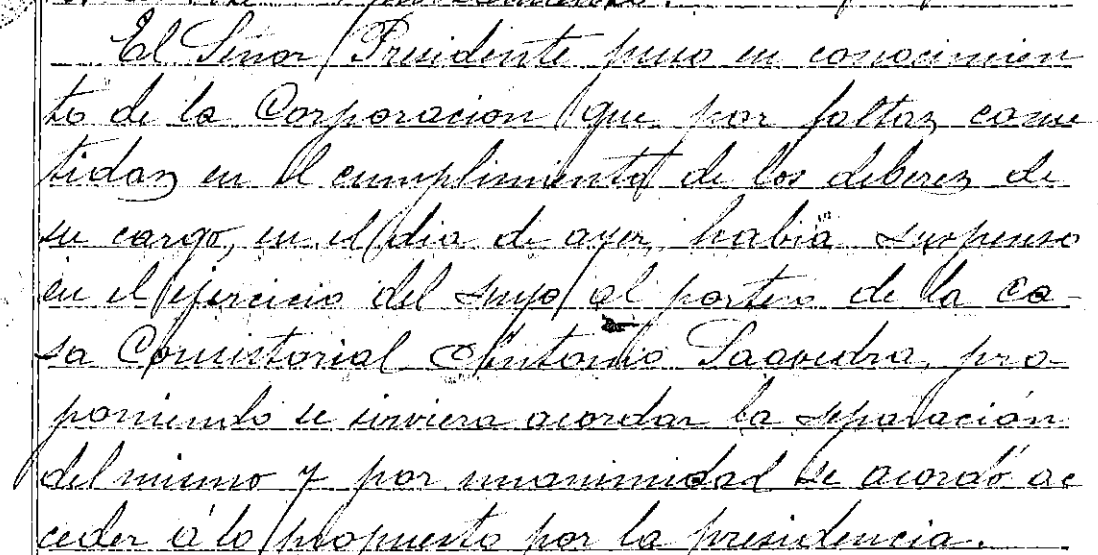 El Señor Presidente puso en conocimien
to de la Corporacion que por faltas come
tidas en el cumplimiento de los deberes de
su cargo, en el dia de ayer, habia suspenso
en el ejercicio del suyo al portero de la ca-
sa Consistorial Antonio Saavedra, pro-
poniendo se sirviera acordar la separación
del mismo y por unanimidad se acordó ac
ceder á lo propuesto por la presidencia.